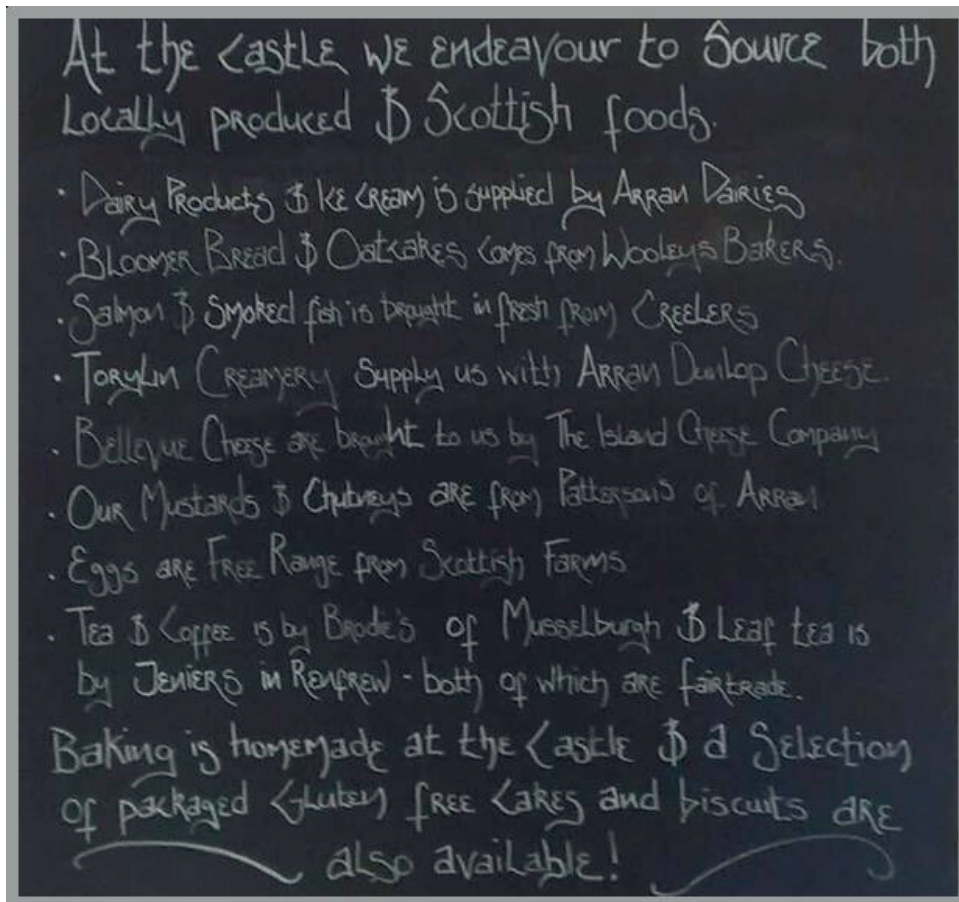 At the Castle we endeavour to Source both
Locally produced & Scottish foods.
· Dairy Products & Ice Cream is supplied by Arran Dairies
· Bloomer Bread & Oatcakes comes from Wooleys Bakers.
· Salmon & Smoked fish is brought in fresh from Creelers
· Torylin Creamery Supply us with Arran Dunlop Cheese.
· Bellevue Cheese are brought to us by The Island Cheese Company
· Our Mustards & Chutneys are from Patterson's of Arran
· Eggs are Free Range from Scottish Farms
· Tea & Coffee is by Brodie's of Musselburgh & Leaf tea is
by Jeniers in Renfrew - both of which are fairtrade.
Baking is homemade at the Castle & a Selection
of packaged Gluten free Cakes and biscuits are
also available!